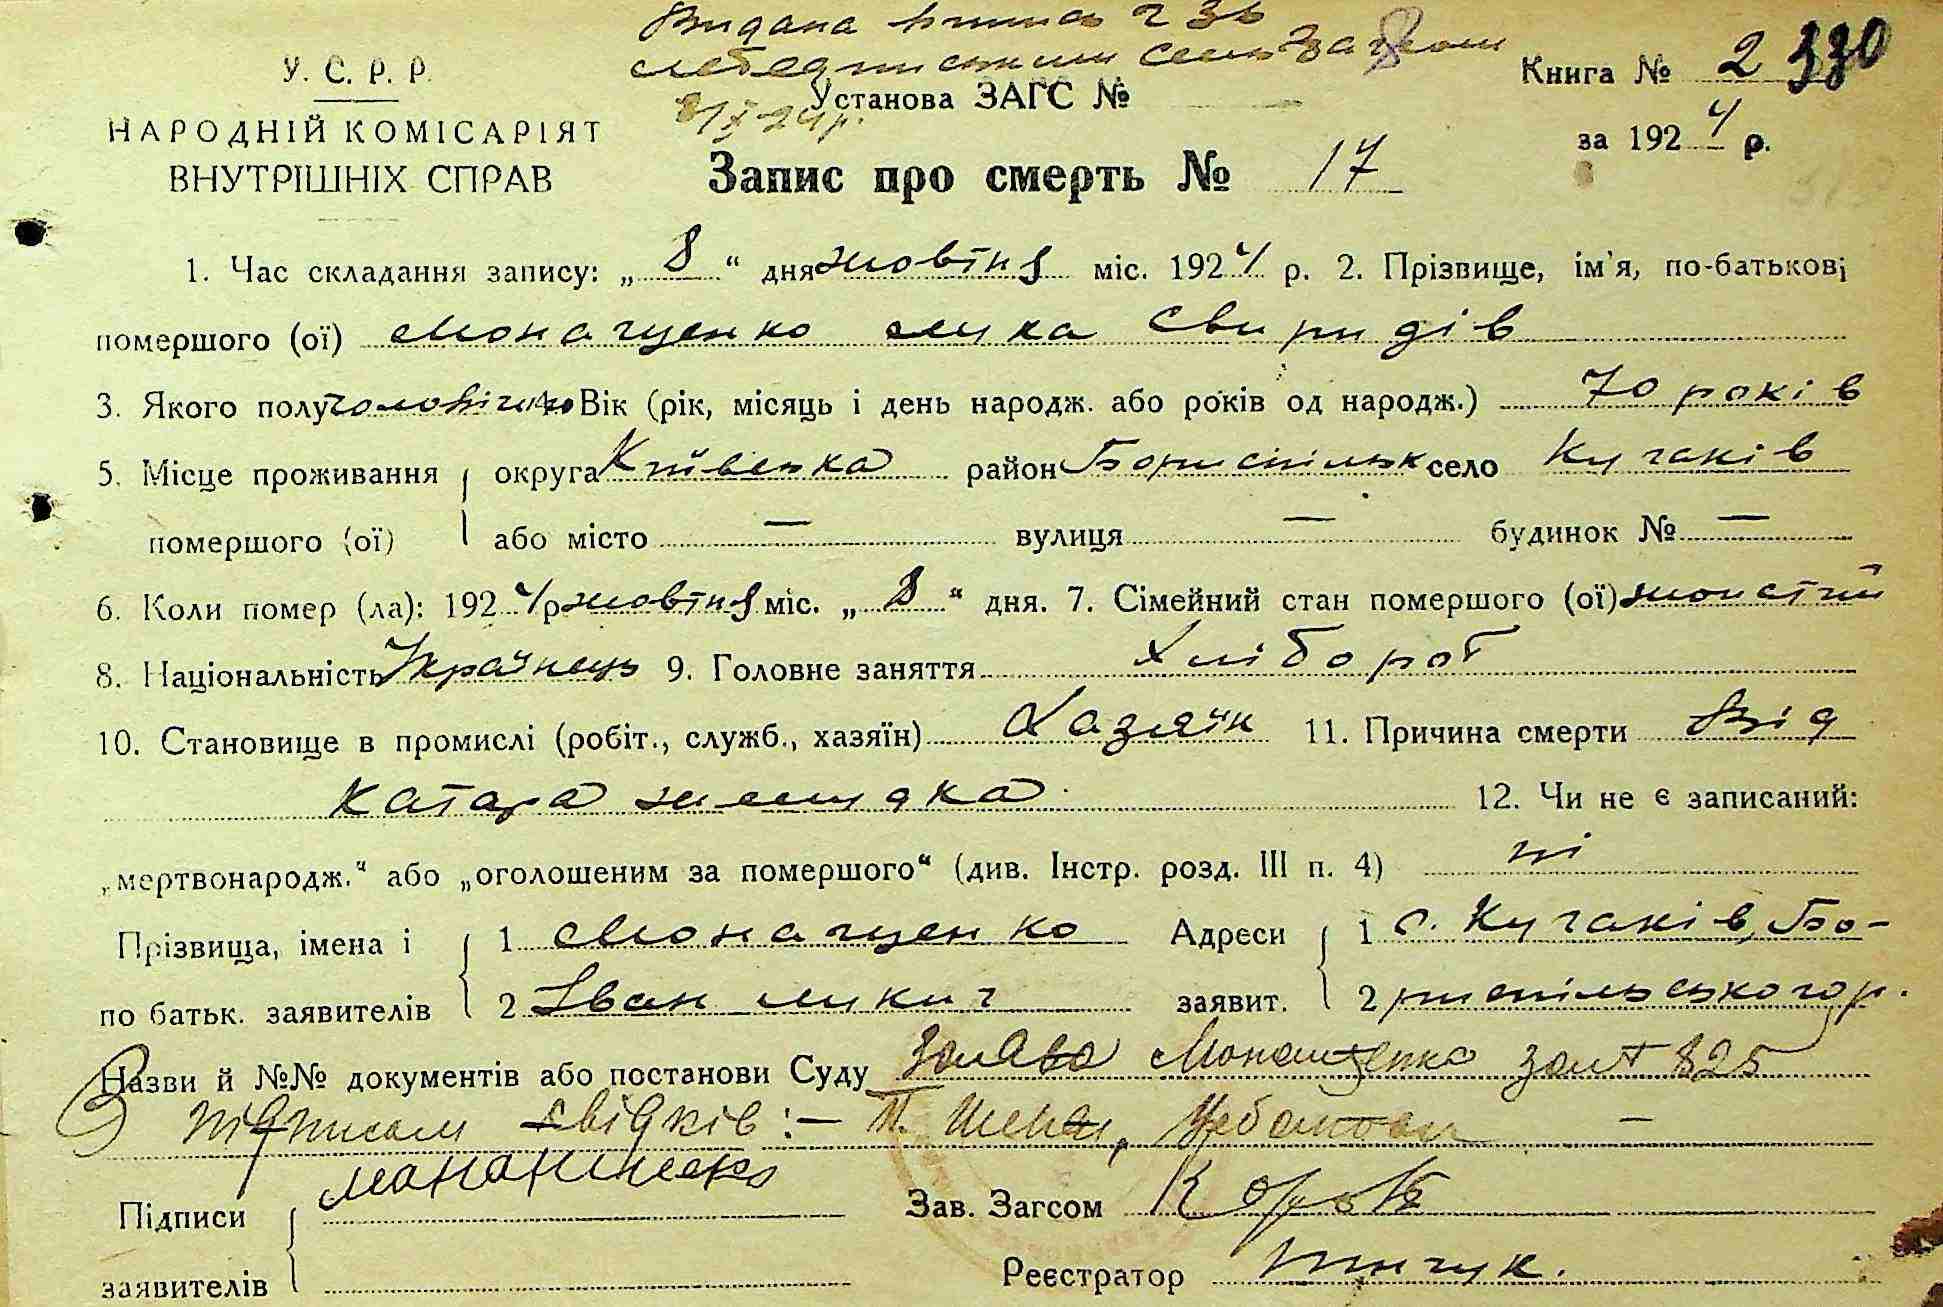 Видана
У. С. Р. Р.
НАРОДНІЙ КОМІСАРІЯТ
ВНУТРІШНІХ СПРАВ
Установа ЗАГС №
Книга № 2 330
за 1924 р.
Запис про смерть № 17
1. Час складання запису: „ 8 “ дня жовтня міс. 1924 р. 2. Прізвище, ім'я, по-батькові
помершого (ої) Монащенко Лука Свиридів
3. Якого полу чоловічого Вік (рік, місяць і день народж. або років од народж.) 70 років
5. Місце проживання округа Київська район Бориспільськ село Кучаків
помершого (ої) або місто — вулиця — будинок № —
6. Коли помер (ла): 1924 р жовтня міс. „ 8 “ дня. 7. Сімейний стан помершого (ої)
8. Національність Українець 9. Головне заняття Хлібороб
10. Становище в промислі (робіт., служб., хазяїн) Хазяїн 11. Причина смерти Від
катара желудка 12. Чи не є записаний:
„мертвонародж.“ або „оголошеним за помершого“ (див. Інстр. розд. III п. 4) ні
Прізвища, імена і 1 Монащенко Адреси 1 с. Кучаків, Бо-
по батьк. заявителів 2 Іван Лукич заявит. 2 риспільського р.
Назви й №№ документів або постанови Суду Заява Монащенко 825
з підписом свідків: —
Підписи Зав. Загсом
заявителів Реєстратор